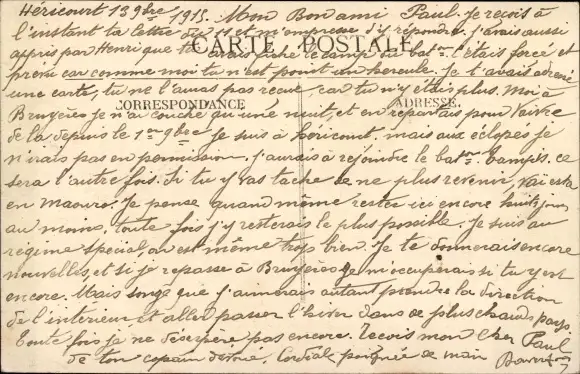 Héricourt 13 9bre 1915. Mon Bon ami Paul. Je reçois à
l'instant ta lettre du 11 et m'empresse d'y répondre. j'avais aussi
CARTE POSTALE
appris par Henri que tu avais fiche le camp du bat on. l'étais forcé et
prévu car comme moi tu n'est point un hercule. Je t'avais adressé
une carte, tu ne l'auras pas reçue, car tu n'y étais plus. Moi à
CORRESPONDANCE ADRESSE
Bruyères je n'ai couché qu'une nuit, et en repartais pour Vaivre
de là depuis le 1er 9bre je suis à Héricourt. mais aux éclopés je
n'irais pas en permission. j'aurais à rejoindre le bat on. tampis. ce
sera l'autre fois. Si tu y vas tache de ne plus revenir,
en Je pense quand même rester ici encore huit jours
au moins, toute fois j'y resterais le plus possible. Je suis au
régime spécial, on est même trop bien. Je te donnerais encore
nouvelles, et si je repasse à Bruyères je m'occuperais si tu y est
encore. Mais songe que j'aimerais autant prendre la direction
de l'intérieur et aller passer l'hiver dans ce plus chauds pays.
Toute fois je ne désespère pas encore. Reçois mon cher Paul
de ton copain dévoué, Cordiale poignée de main